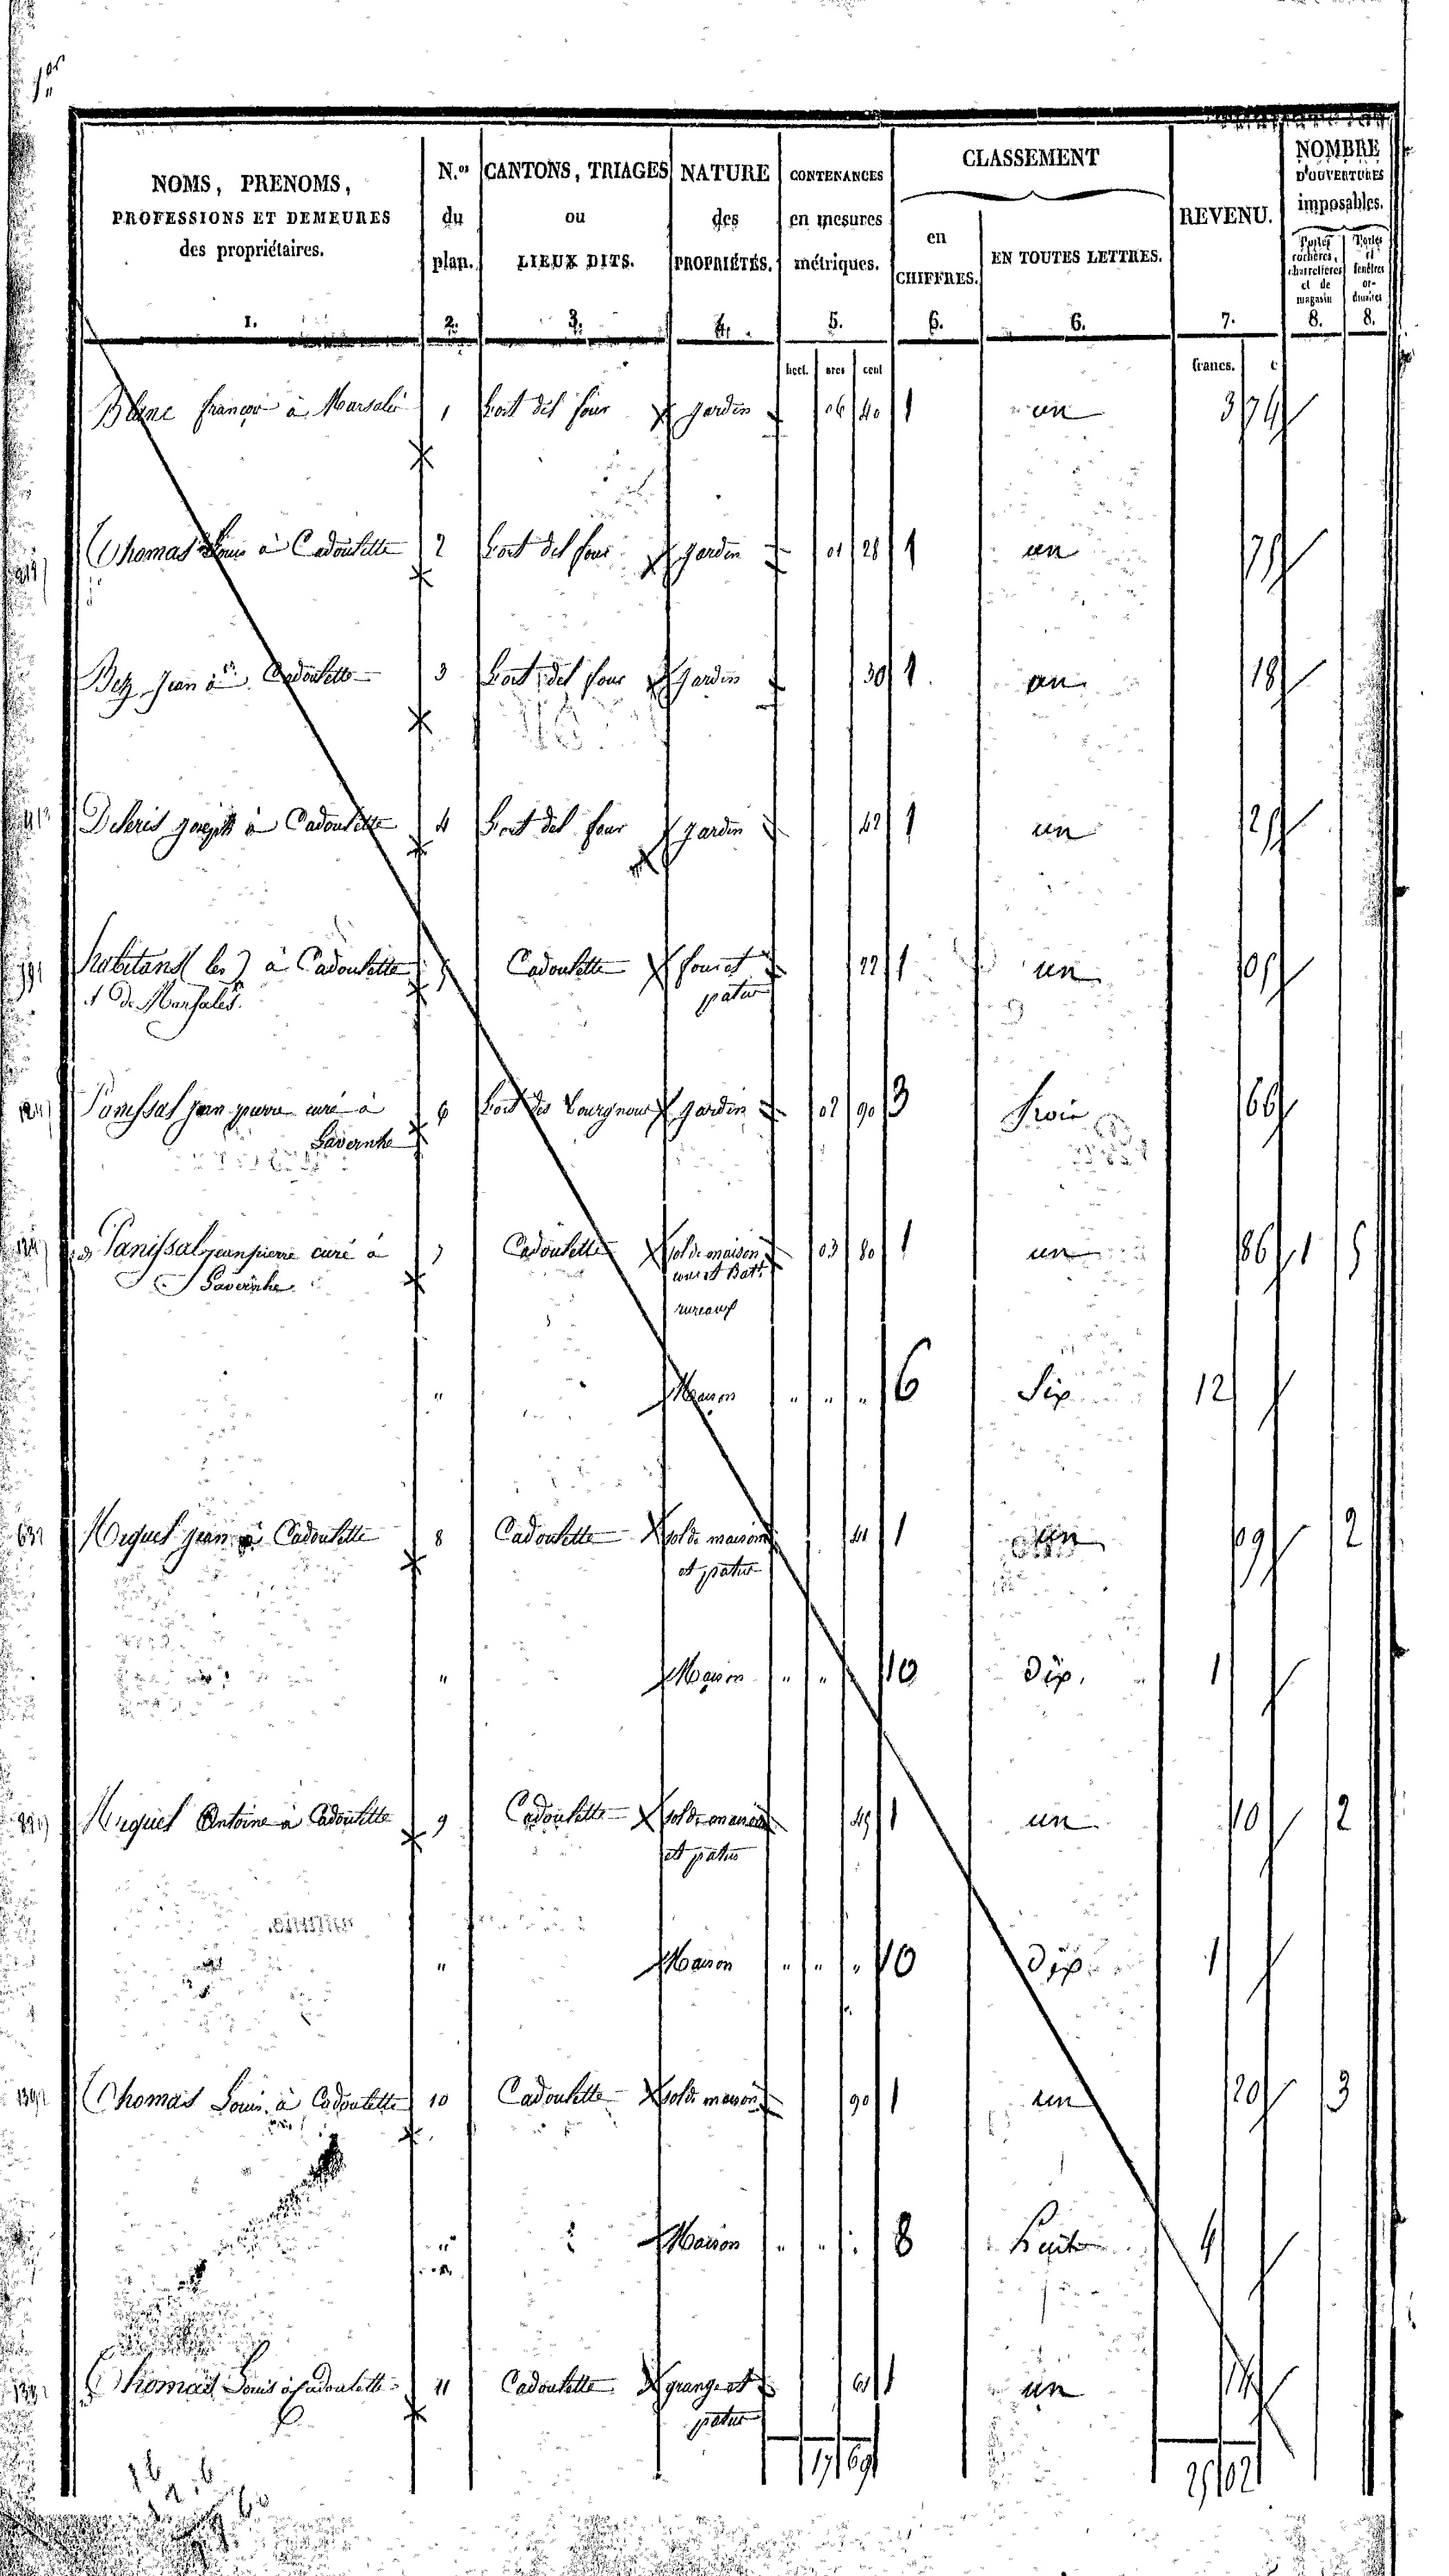 1er
NOMS, PRENOMS, PROFESSIONS ET DEMEURES des propriétaires.
N.os du plan.
CANTONS, TRIAGES ou LIEUX DITS.
NATURE des PROPRIÉTÉS.
CONTENANCES en mesures métriques.
CLASSEMENT
en CHIFFRES.
EN TOUTES LETTRES.
REVENU.
NOMBRE D'OUVERTURES imposables.
Portes cochères, charretières et de magasin
Portes et fenêtres ordinaires
1. 2. 3. 4. 5. 6. 6. 7. 8. 8.
hect. ares cent francs. c
Blanc françois à Marsalès 1 hort del four jardin 06 40 1 un 3 74
Thomas Louis à Cadoulette 2 hort del four jardin 01 28 1 un 75
Bez Jean à Cadoulette 3 hort del four jardin 30 1 un 18
Deleris joseph à Cadoulette 4 hort del four jardin 42 1 un 25
habitans (les) à Cadoulette 5 Cadoulette four et 22 1 un 05
et De Marsalès. patus
Panissal jean pierre curé à 6 hort des jardin 02 90 3 trois 66
Lavernhe
Panissal jean pierre curé à 7 Cadoulette sol de maison 03 80 1 un 86 1 5
Lavernhe cour et Bat.
ruraux
" Maison " " " 6 Six 12
Miquel jean à Cadoulette 8 Cadoulette sol de maison 41 1 un 09 2
et patus
" Maison " " 10 dix 1
Miquel Antoine à Cadoulette 9 Cadoulette sol de maison 45 1 un 10 2
et patus
" Maison " " " 10 dix 1
Thomas Louis à Cadoulette 10 Cadoulette sol de maison 90 1 un 20 3
" Maison " " 8 huit 4
Thomas Louis à Cadoulette 11 Cadoulette grange et 61 1 un 14
patus
17 69 25 02